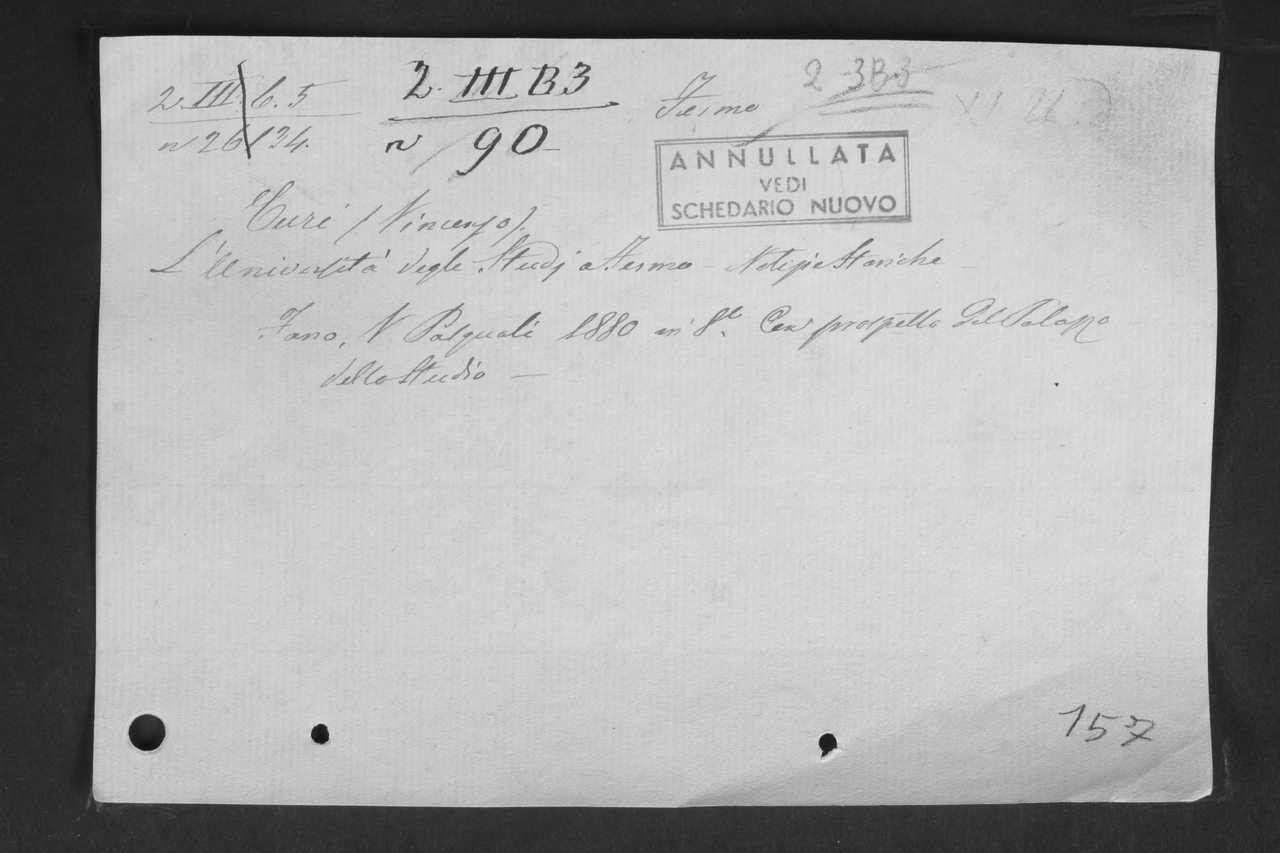 2. III. 6. 5
n 26134.
2. III B3
n 90
Fermo
2 3B3
XI
ANNULLATA
VEDI
SCHEDARIO NUOVO
Curi (Vincenzo).
L'Università degli Studj a Fermo - Notizie Storiche -
Fano, V Pasquali 1880 in 8.° Con prospetto del Palazzo
dello Studio -
157